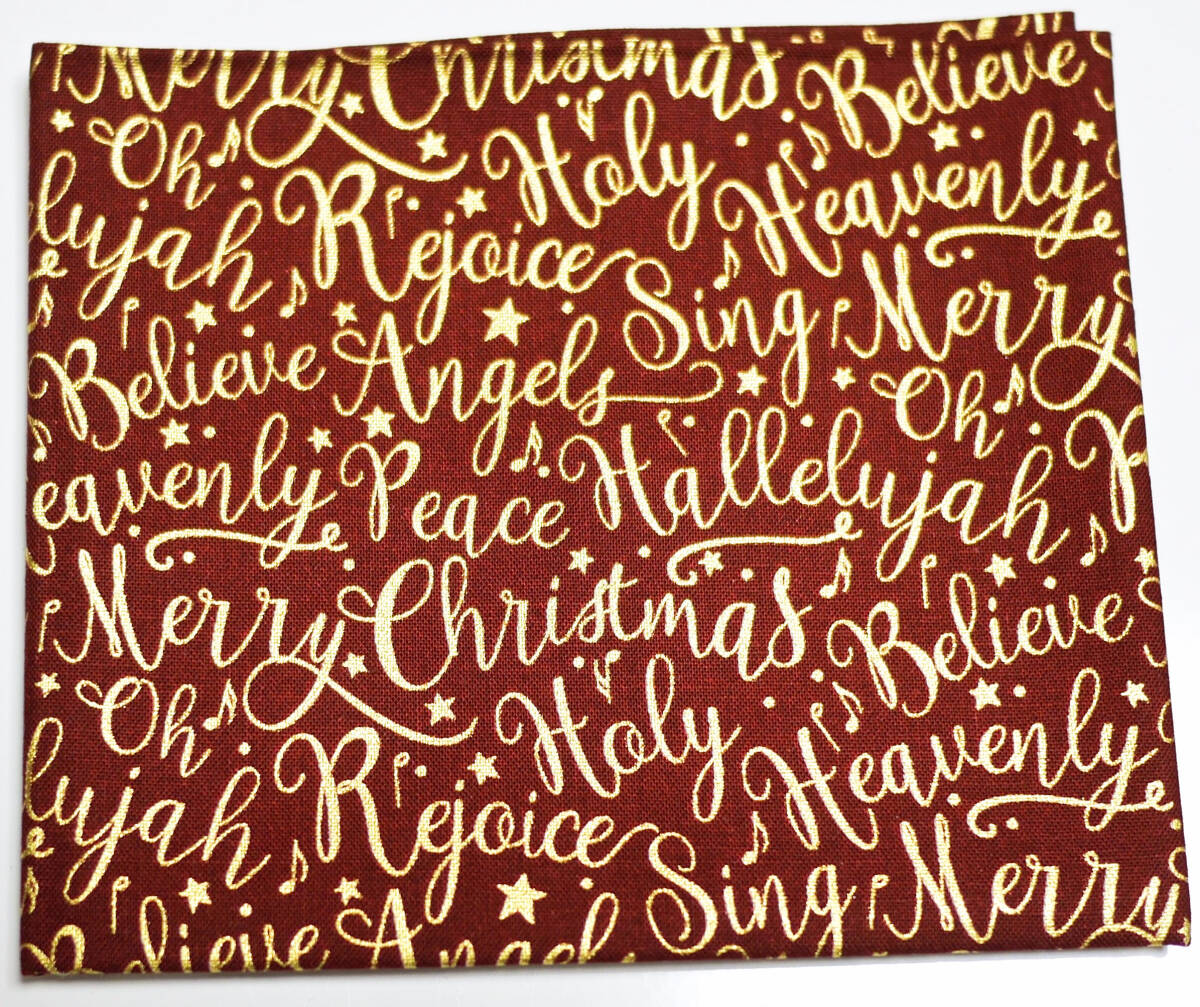 Merry Christmas Believe
Oh Holy Heavenly
lujah Rejoice Sing Merry
Believe Angels Oh
eavenly Peace Hallelujah R
Merry Christmas Believe
Oh Holy Heavenly
lujah Rejoice Sing Merry
Believe Angels